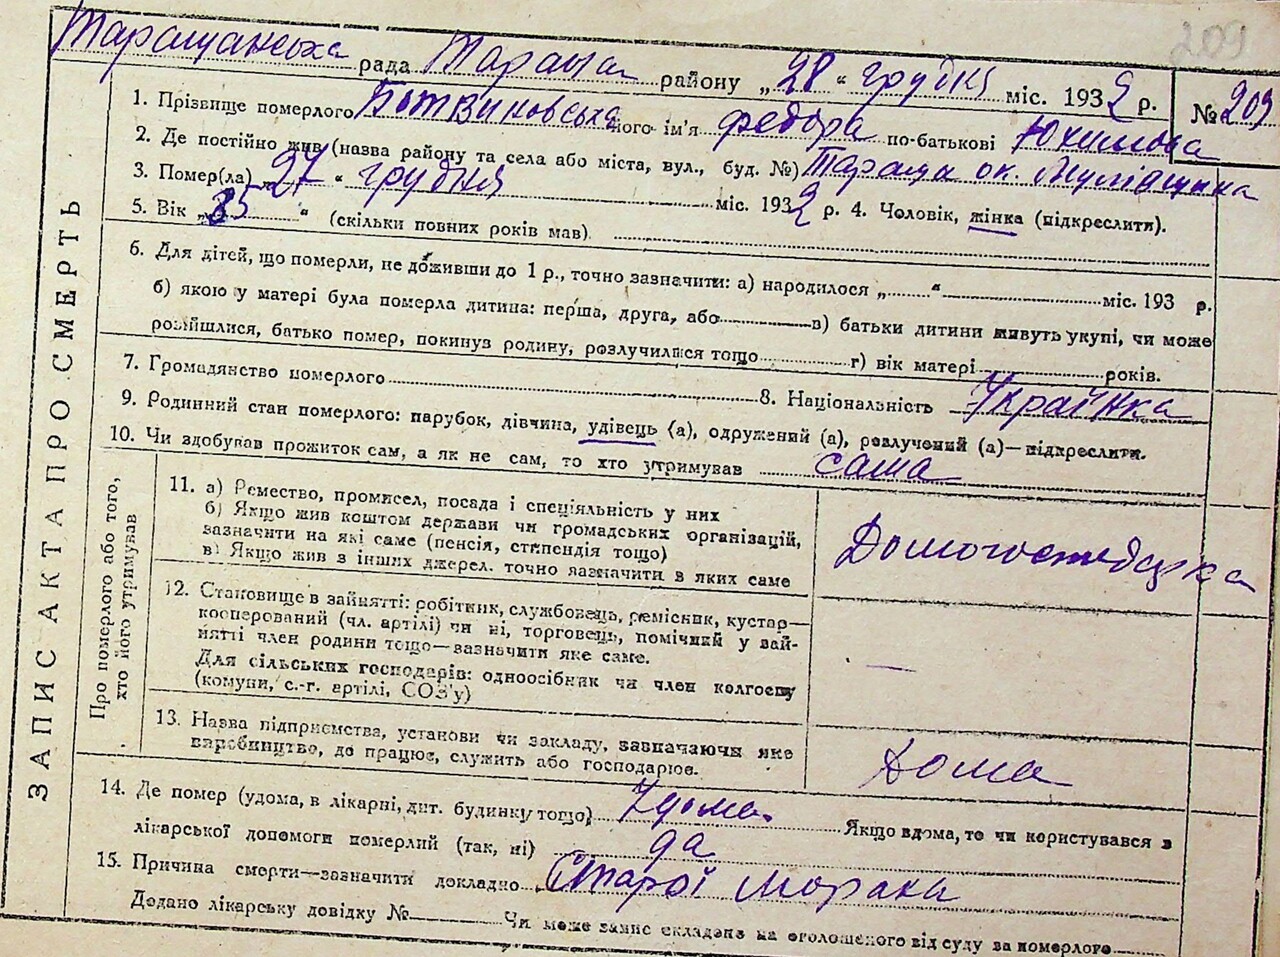 209
Таращанська рада Тараща району „28" грудня міс. 1932 р. № 209
1. Прізвище померлого Ботвиновська його ім'я Федора по-батькові Юхимова
2. Де постійно жив (назва району та села або міста, вул., буд. №) Тараща ок.
3. Помер(ла) „27" грудня міс. 1932 р. 4. Чоловік, жінка (підкреслити).
5. Вік „85" (скільки повних років мав)
6. Для дітей, що померли, не доживши до 1 р., точно зазначити: а) народилося „ " міс. 193 р.
б) якою у матері була померла дитина: перша, друга, або в) батьки дитини живуть укупі, чи може
розійшлися, батько помер, покинув родину, розлучилися тощо г) вік матері років.
7. Громадянство померлого 8. Національність Українка
9. Родинний стан померлого: парубок, дівчина, удівець (а), одружений (а), розлучений (а)—підкреслити.
10. Чи здобував прожиток сам, а як не сам, то хто утримував сама
ЗАПИС АКТА ПРО СМЕРТЬ
Про померлого або того,
хто його утримував
11. а) Ремество, промисел, посада і спеціяльність у них
б) Якщо жив коштом держави чи громадських організацій,
зазначити на які саме (пенсія, стипендія тощо)
в) Якщо жив з інших джерел, точно зазначити в яких саме
Домогосподарка
12. Становище в зайнятті: робітник, службовець, ремісник, кустар—
кооперований (чл. артілі) чи ні, торговець, помічний у зай-
нятті член родини тощо—зазначити яке саме.
Для сільських господарів: одноосібник чи член колгоспу
(комуни, с.-г. артілі, СОЗ'у)
—
13. Назва підприємства, установи чи закладу, зазначаючи яке
виробництво, де працює, служить або господарює.
Дома
14. Де помер (удома, в лікарні, дит. будинку тощо) Удома. Якщо вдома, то чи користувався з
лікарської допомоги померлий (так, ні) да
15. Причина смерти—зазначити докладно Старої
Додано лікарську довідку № Чи може запис складено на оголошеного від суду за померлого